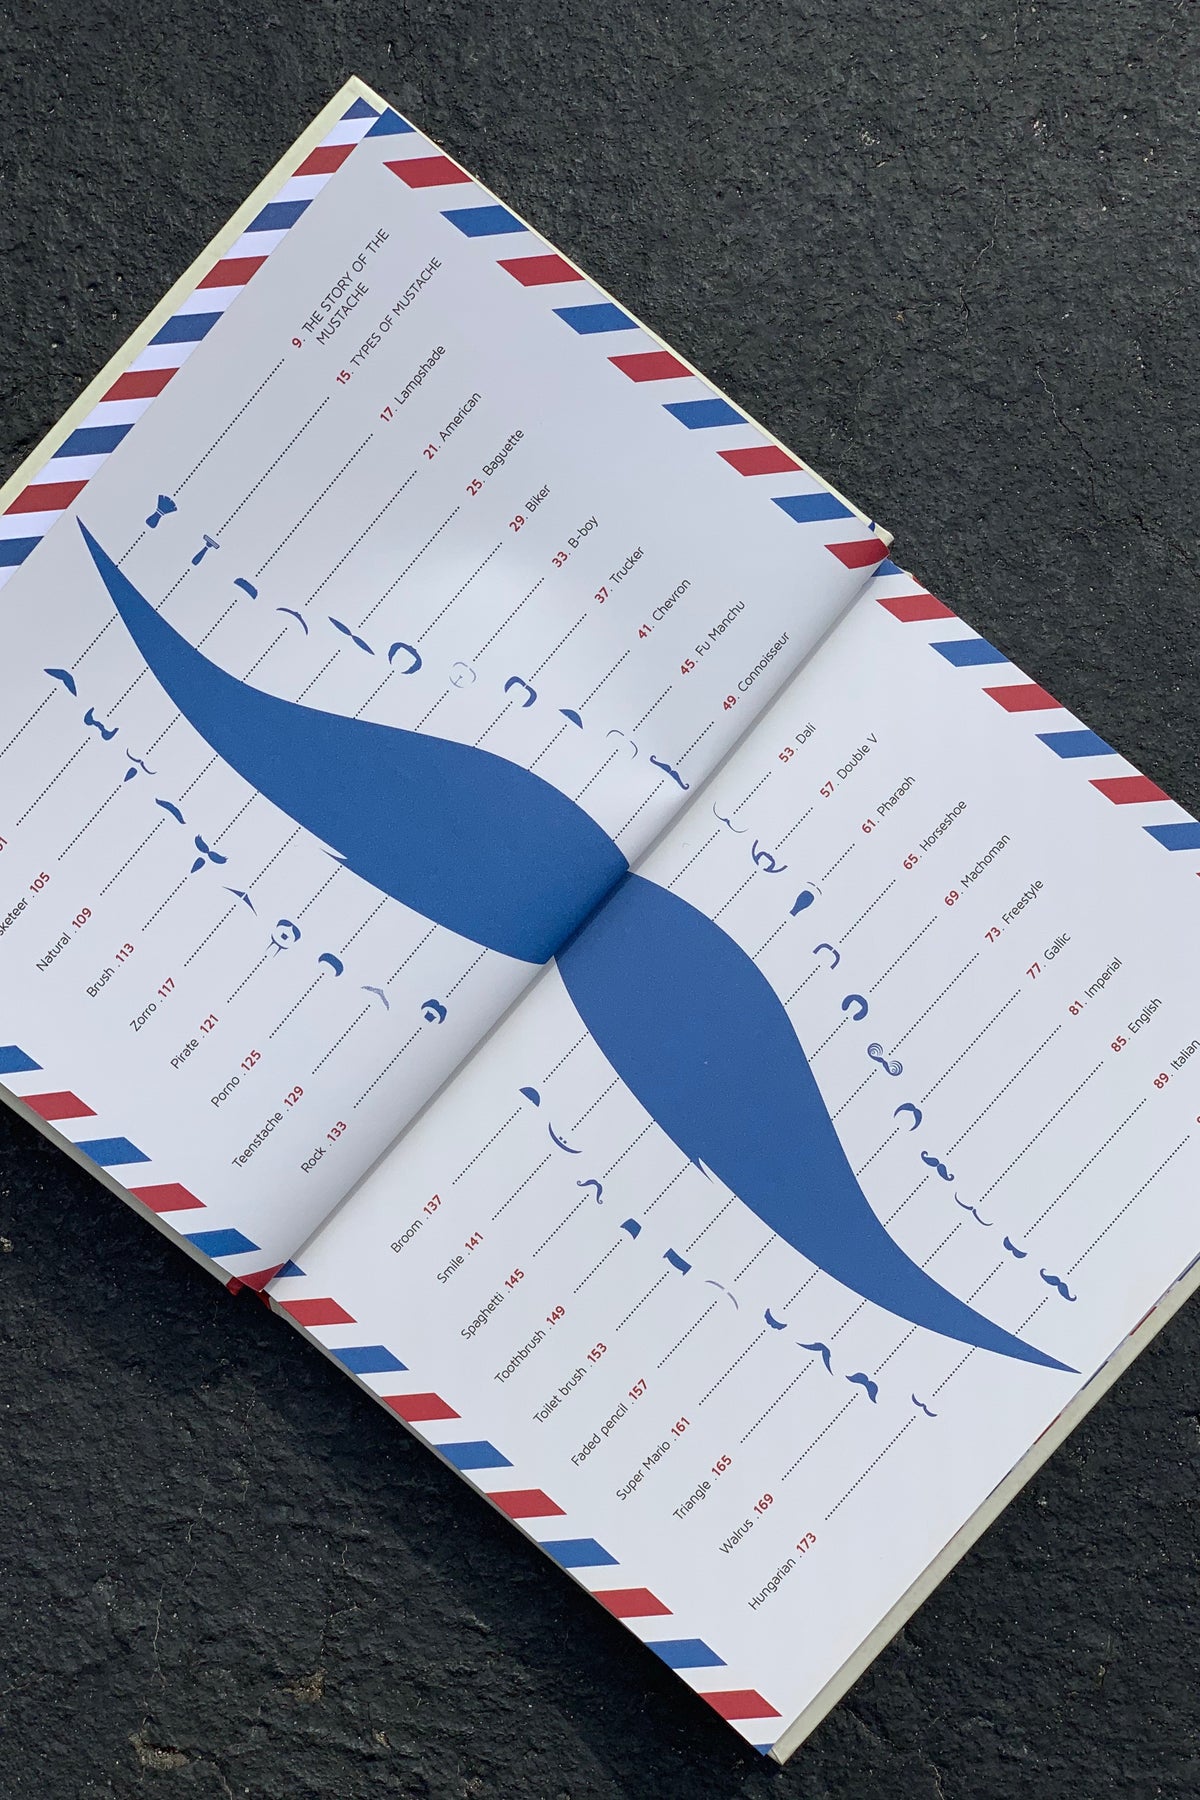 9. THE STORY OF THE
MUSTACHE
15. TYPES OF MUSTACHE
17. Lampshade
21. American
25. Baguette
29. Biker
33. B-boy
37. Trucker
41. Chevron
45. Fu Manchu
49. Connoisseur
53. Dali
57. Double V
61. Pharaoh
65. Horseshoe
69. Machoman
73. Freestyle
77. Gallic
81. Imperial
85. English
89. Italian
.105
Natural .109
Brush .113
Zorro .117
Pirate .121
Porno .125
Teenstache .129
Rock .133
Broom .137
Smile .141
Spaghetti .145
Toothbrush .149
Toilet brush .153
Faded pencil .157
Super Mario .161
Triangle .165
Walrus .169
Hungarian .173